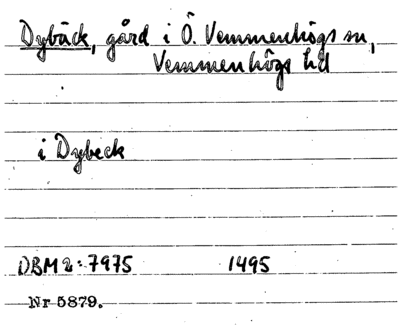 Dybäck, gård i Ö. Vemmenhögs sn,
Vemmenhögs hd
i Dybeck
DBM 2:7975 1495
Nr 5879.